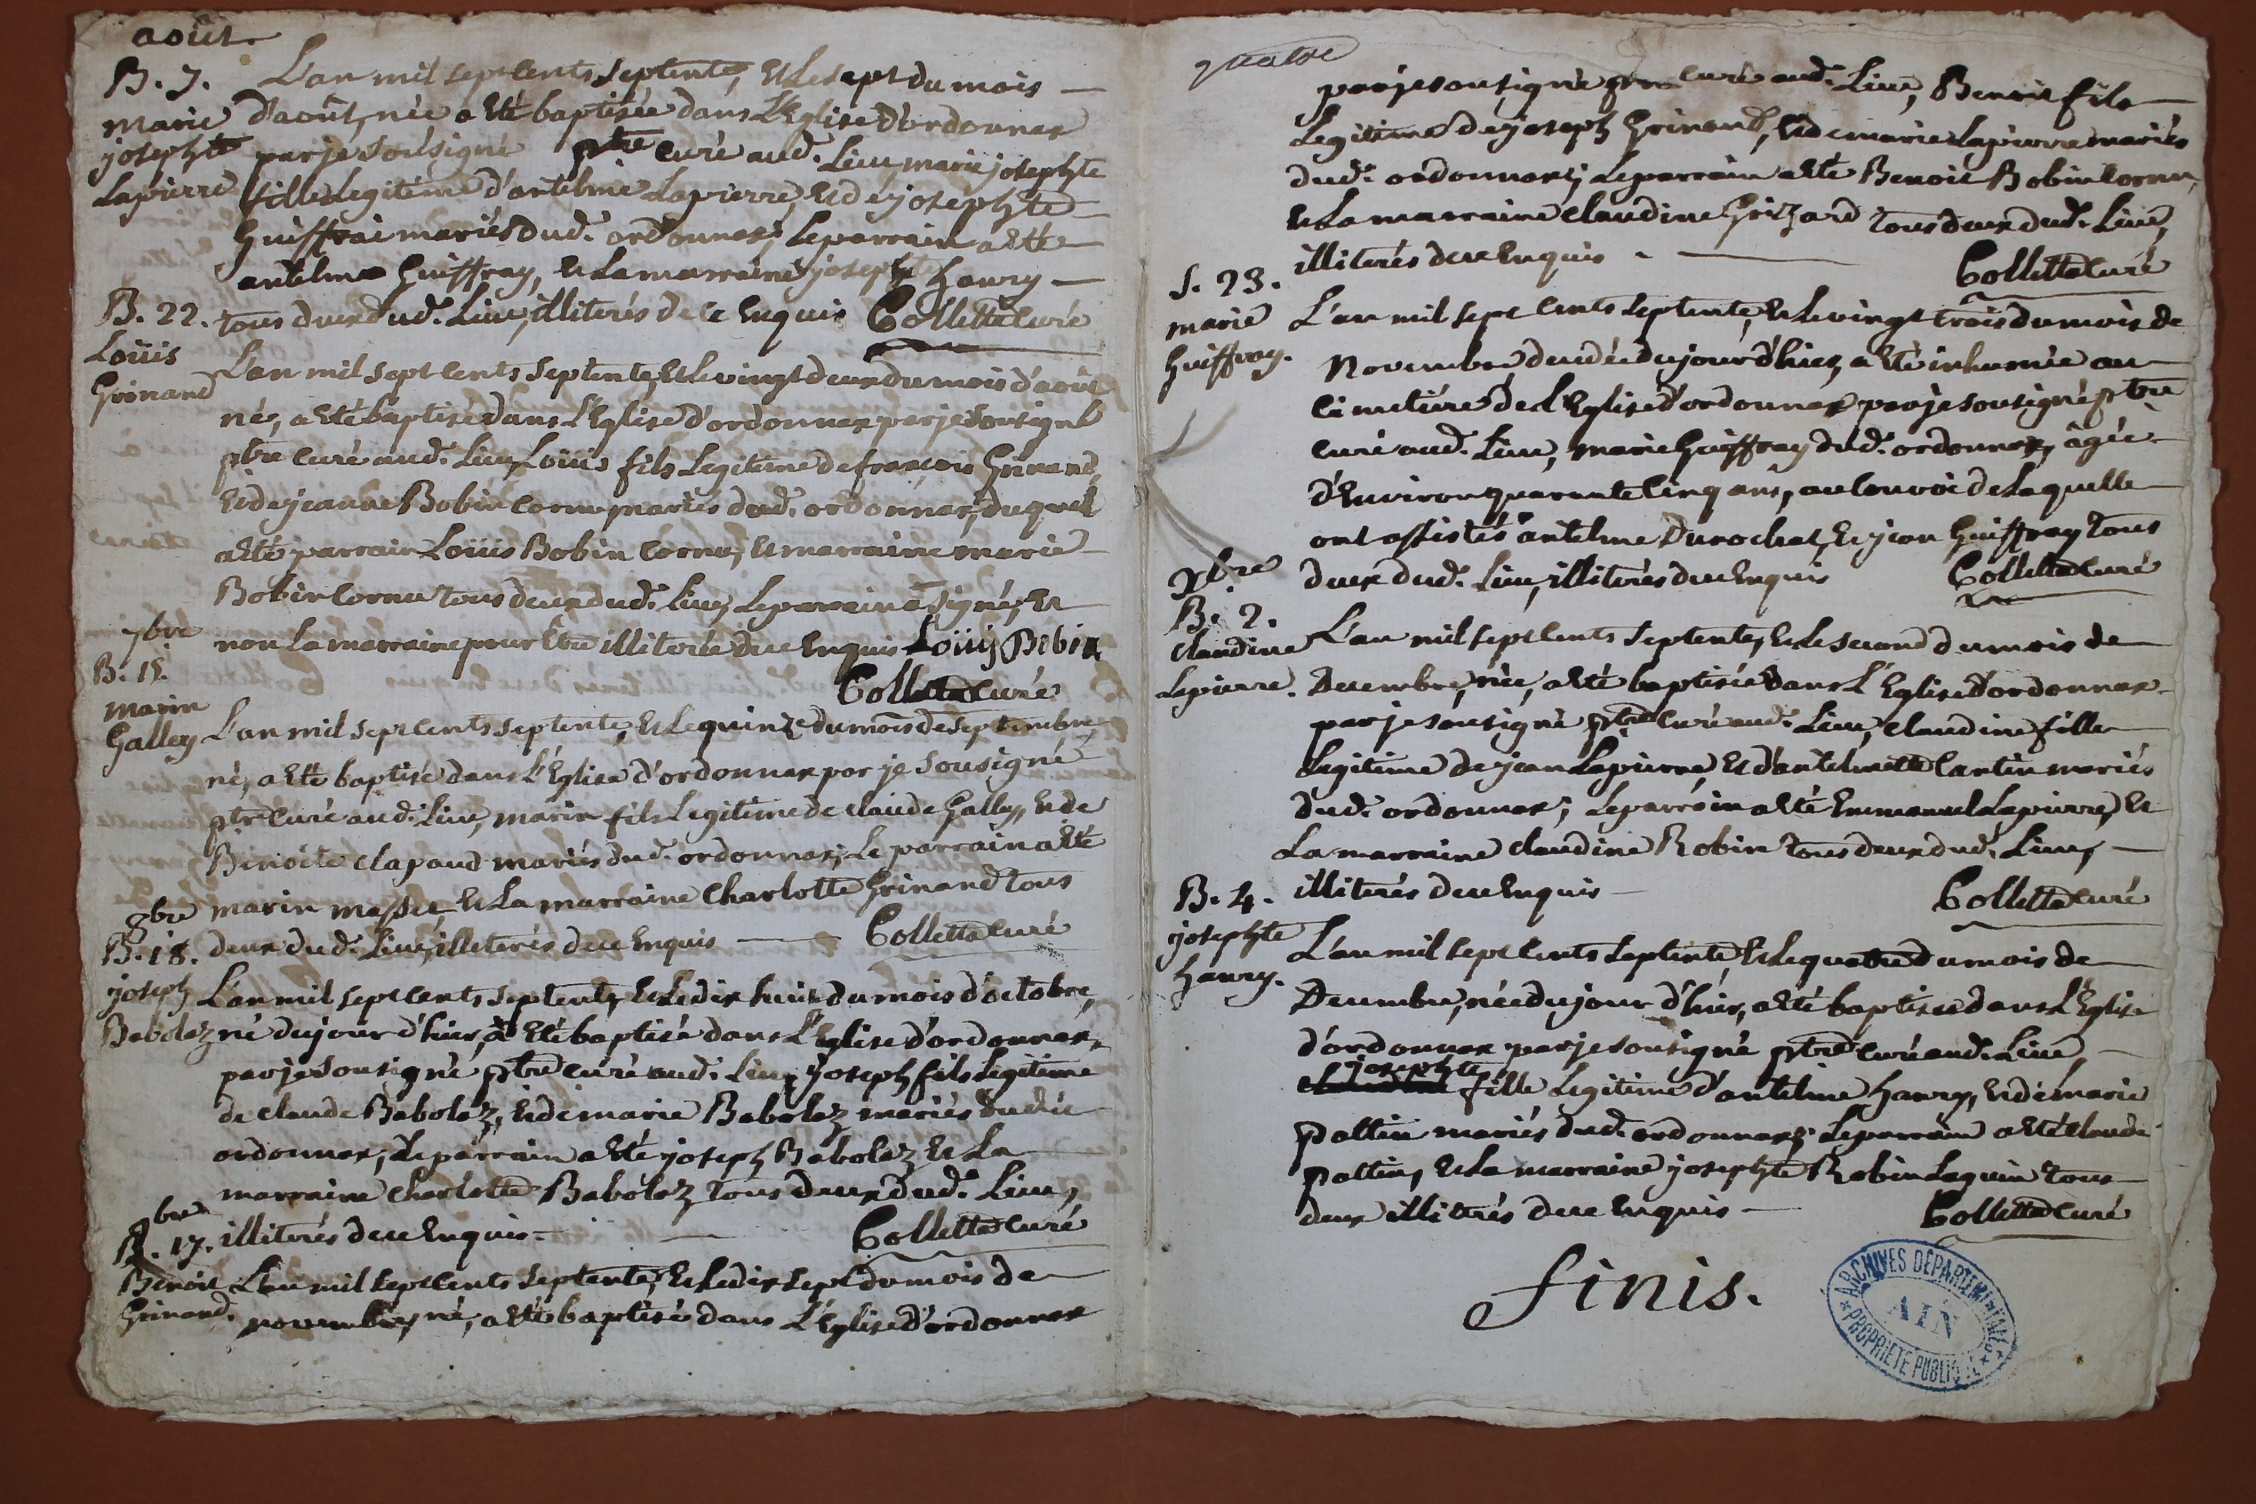 août.
B. 7.
marie
josephte
Lapierre
L'an mil sept cents septente, et le sept du mois
d'août, née a etté baptisée dans L'Eglise d'ordonnax
par je sousigné ptre curé aud. Lieu, marie josephte
fille Legitime d'antelme Lapierre, et de josephte
Guiffrai mariés dud. ordonnax; Le parrain a etté
antelme Guiffray, et La marraine josephte hanry
tous deux dud. Lieu, illiterés de ce enquis Colletta curé
B. 22.
Loüis
Grinand
L'an mil sept cents septente, et le vingt deux du mois d'août
né, a etté baptisé dans L'Eglise d'ordonnax par je sousigné
ptre curé aud. Lieu, Loüis fils Legitime de françois Grinand,
et de jeanne Bobin Cornu mariés dud. ordonnax, duquel
a etté parrain Loüis Bobin Cornu, et marraine marie
Bobin Cornu tous deux dud. Lieu, Le parrain a signé, et
non La marraine pour être illiterée de ce enquis Loüis Bobin
Colletta curé
7bre
B. 15.
marin
Galley
L'an mil sept cents septente, et le quinze du mois de septembre
né, a etté baptisé dans L'Eglise d'ordonnax par je sousigné
ptre curé aud. Lieu, marin fils Legitime de claude Galley, et de
Benoite clapaud mariés dud. ordonnax; Le parrain a etté
marin massue, et La marraine Charlotte Grinand tous
deux dud. Lieu, illiterés de ce enquis Colletta curé
8bre
B. 18.
joseph
Babolez
L'an mil sept cents septente, et Le dix huit du mois d'octobre,
né du jour d'hier, a eté baptisé dans L'Eglise d'ordonnax,
par je sousigné ptre curé aud. Lieu, joseph fils Legitime
de claude Babolez, et de marie Babolez mariés dudit
ordonnax; Le parrain a etté joseph Babolez et La
marraine Charlotte Babolez tous deux dud. Lieu,
illiterés de ce enquis. Colletta curé
9bre
B. 17.
Benoit
Grinand.
L'an mil sept cents septente, et Le dix sept du mois de
novembre, né, a etté baptisé dans L'Eglise d'ordonnax
quatre
par je sousigné ptre curé aud. Lieu, Benoit fils
Legitime de joseph Grinand, et de marie Lapierre mariés
dud. ordonnax; Le parrain a etté Benoit Bobin Cornu,
et La marraine claudine Grizard tous deux dud. Lieu,
illiterés de ce enquis. Colletta curé
S. 23.
marie
Guiffray.
L'an mil sept cents septente, et Le vingt trois du mois de
Novembre decedée du jour d'hier, a etté inhumée au
cimetiére de L'Eglise d'ordonnax par je sousigné ptre
curé aud. Lieu, marie Guiffray dud. ordonnax, âgée
d'environ quarante cinq ans, au convoi de Laquelle
ont assistés antelme Durochat, et jean Guiffray tous
deux dud. Lieu, illiterés de ce enquis Colletta curé
Xbre
B. 2.
Claudine
Lapierre.
L'an mil sept cents septente, et Le second du mois de
Decembre, née, a etté baptisée dans L'Eglise d'ordonnax
par je sousigné ptre curé aud. Lieu, claudine fille
Legitime de jean Lapierre, et d'antelmette Cantin mariés
dud. ordonnax; Le parrain a etté Emmanuel Lapierre, et
La marraine claudine Robin tous deux dud. Lieu,
illiterés de ce enquis Colletta curé
B. 4.
josephte
hanry.
L'an mil sept cents septente, et Le quatre du mois de
Decembre, née du jour d'hier, a etté baptisée dans L'Eglise
d'ordonnax par je sousigné ptre curé aud. Lieu,
josephte
fille Legitime d'antelme hanry, et de marie
pottin mariés dud. ordonnax; Le parrain a etté claude
pottin, et La marraine josephte Robin Laquin tous
deux illiterés de ce enquis Colletta curé
finis.
ARCHIVES DÉPARTEMENTALES
AIN
PROPRIÉTÉ PUBLIQUE